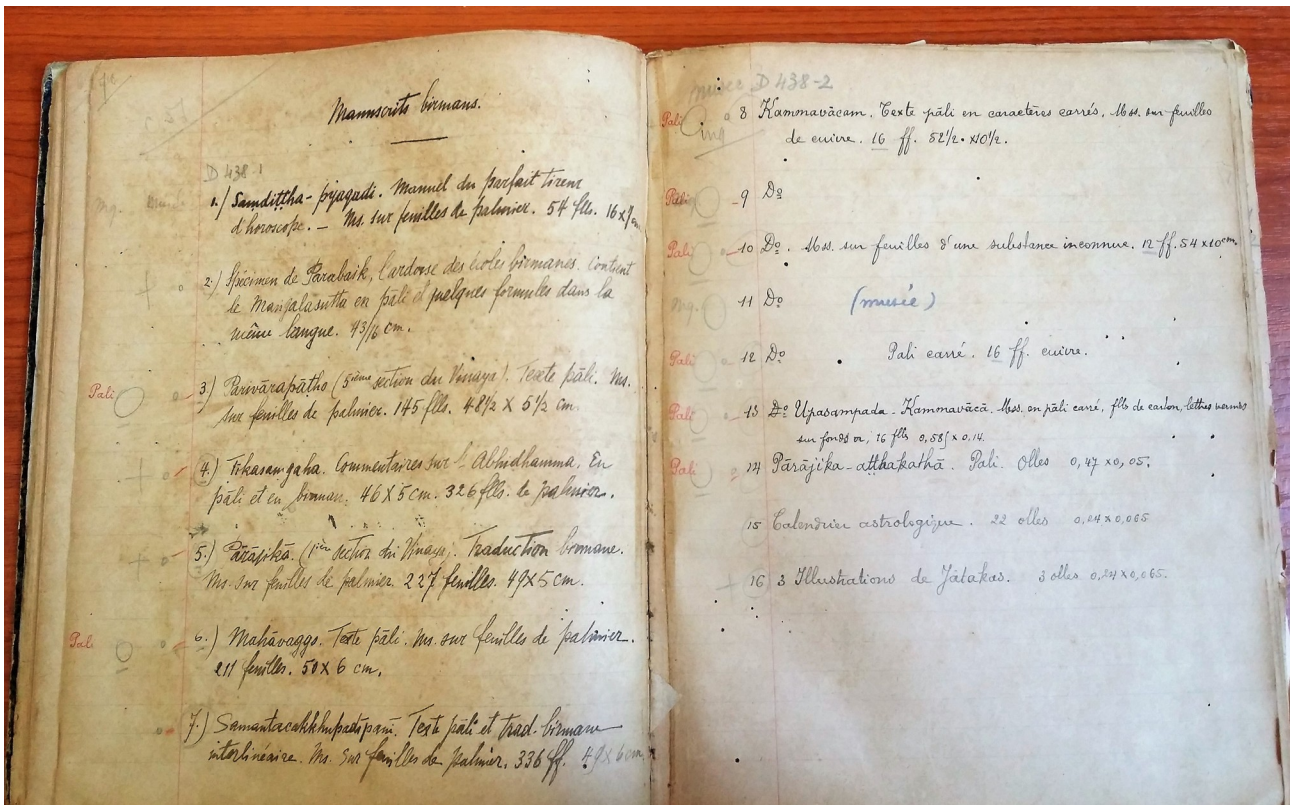 Manuscrits birmans.
D 438-1
1.) Samdiṭṭha-pyagadi. Manuel du parfait tireur
d'horoscope. — Ms. sur feuilles de palmier. 54 flls. 16 x
2.) Spécimen de Parabaik, l'ardoise des écoles birmanes. Contient
le Mangalasutta en pāli et quelques formules dans la
même langue. 43/16 cm.
Pali 3.) Parivārapātho (5ième section du Vinaya). Texte pāli. Ms.
sur feuilles de palmier. 145 flls. 48½ X 5½ cm.
4.) Tikasamgaha. Commentaires sur l'Abhidhamma. En
pāli et en birman. 46 X 5 cm. 326 flls. de palmier.
5.) Pārājikā. (1ière section du Vinaya). Traduction birmane.
Ms. sur feuilles de palmier. 227 feuilles. 49 X 5 cm.
Pali 6.) Mahāvaggo. Texte pāli. Ms. sur feuilles de palmier.
211 feuilles. 50 X 6 cm.
7.) Texte pāli et trad. birmane
interlinéaire. Ms. sur feuilles de palmier. 336 ff. 49 X 6 cm.
musée D 438-2
Pali 8 Kammavācam. Texte pāli en caractères carrés. Mss. sur feuilles
mg de cuivre. 16 ff. 52½ x 10½.
Pali 9 Dº
Pali 10 Dº. Mss. sur feuilles d'une substance inconnue. 12 ff. 54 x 10 cm.
mg. 11 Dº (musée)
Pali 12 Dº Pali carré. 16 ff. cuivre.
Pali 13 Dº Upasampada-Kammavācā. Mss. en pāli carré, flls de carton, lettres
sur fonds or, 16 flls 0,58 x 0,14.
Pali 14 Pārājika-aṭṭhakathā. Pali. Olles 0,47 x 0,05.
15 Calendrier astrologique. 22 olles 0,24 x 0,065
16 3 Illustrations de Jātakas. 3 olles 0,24 x 0,065.